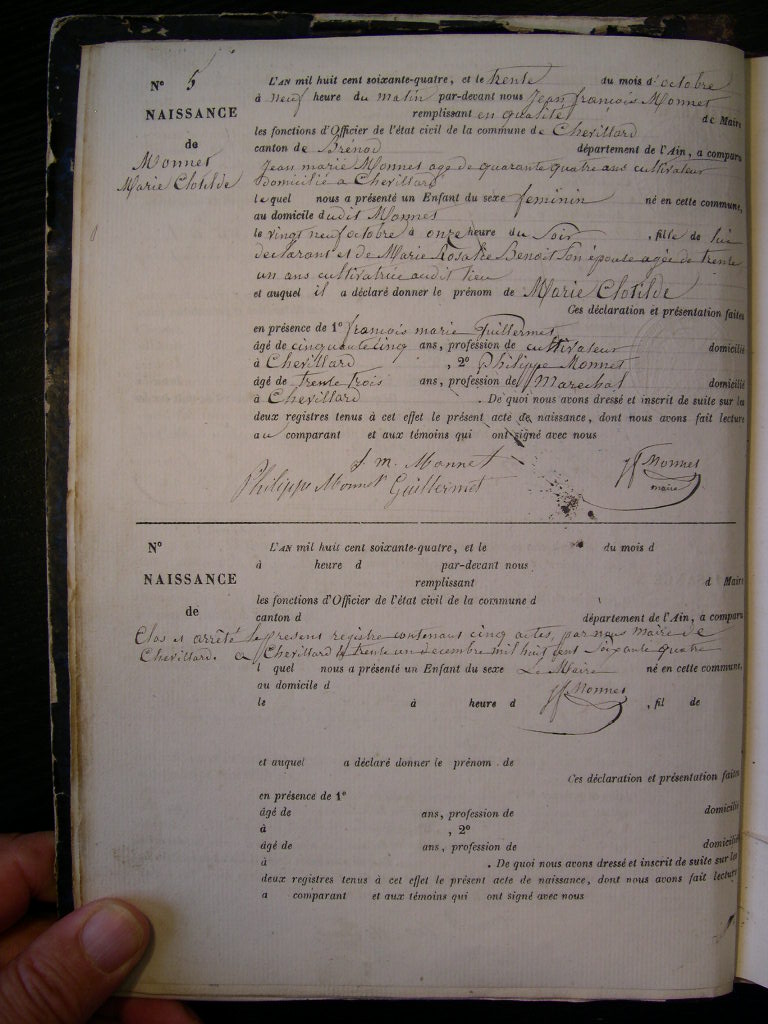 N° 5
NAISSANCE
de
Monnet
Marie Clotilde
L'AN mil huit cent soixante-quatre, et le trente du mois d'octobre
à neuf heure du matin par-devant nous Jean françois Monnet
remplissant en qualité de Maire
les fonctions d'Officier de l'état civil de la commune de Chevillard
canton de Brénod département de l'Ain, a comparu
Jean marie Monnet age de quarante quatre ans cultivateur
domicilié a Chevillard
lequel nous a présenté un Enfant du sexe feminin né en cette commune,
au domicile dudit Monnet
le vingt neuf octobre à onze heure du Soir , fille de lui
declarant et de Marie Rosalie Benoit Son épouse agée de trente
un ans cultivatrice audit lieu
et auquel il a déclaré donner le prénom de Marie Clotilde
Ces déclaration et présentation faites
en présence de 1° francois marie Guillermet
âgé de cinquante cinq ans, profession de cultivateur domicilié
à Chevillard , 2° Philippe Monnet
âgé de trente trois ans, profession de Marechal domicilié
à Chevillard . De quoi nous avons dressé et inscrit de suite sur les
deux registres tenus à cet effet le présent acte de naissance, dont nous avons fait lecture
au comparant et aux témoins qui ont signé avec nous
J. m. Monnet
Philippe Monnet Guillermet
Jf Monnet
maire
N°
NAISSANCE
de
L'AN mil huit cent soixante-quatre, et le du mois d
à heure d par-devant nous
remplissant d Maire
les fonctions d'Officier de l'état civil de la commune d
canton d département de l'Ain, a comparu
Clos et arrêté le present registre contenant cinq actes, par nous maire de
Chevillard. a Chevillard le trente un decembre mil huit cent soixante quatre
l quel nous a présenté un Enfant du sexe Le Maire né en cette commune,
au domicile d Jf Monnet
le à heure d , fil de
et auquel a déclaré donner le prénom de
Ces déclaration et présentation faites
en présence de 1°
âgé de ans, profession de domicilié
à , 2°
âgé de ans, profession de domicilié
à . De quoi nous avons dressé et inscrit de suite sur les
deux registres tenus à cet effet le présent acte de naissance, dont nous avons fait lecture
a comparant et aux témoins qui ont signé avec nous